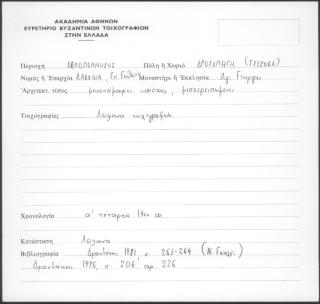 ΑΚΑΔΗΜΙΑ ΑΘΗΝΩΝ
ΕΥΡΕΤΗΡΙΟ ΒΥΖΑΝΤΙΝΩΝ ΤΟΙΧΟΓΡΑΦΙΩΝ
ΣΤΗΝ ΕΛΛΑΔΑ
Περιοχή ΠΕΛΟΠΟΝΝΗΣΟΣ Πόλη ή Χωριό ΔΡΟΣΟΠΗΓΗ (ΤΣΕΡΟΒΑ)
Νομός ή Ἐπαρχία ΛΑΚΩΝΙΑ, Επ. Γυθείου Μοναστήρι ή Ἐκκλησία Αγ. Γεώργιο
Ἀρχιτεκτ. τύπος μονοκάμαρος ναΐσκος, μισοερειπωμένος
Τοιχογραφίες Λείψανα τοιχογραφιών
Χρονολογία α' τέταρτο 14ου αι.
Κατάσταση Λείψανα
Βιβλιογραφία Δρανδάκης 1981, σ. 263-264 (Ν. Γκιολ.)
Δρανδάκης 1996, σ 206 αρ. 226